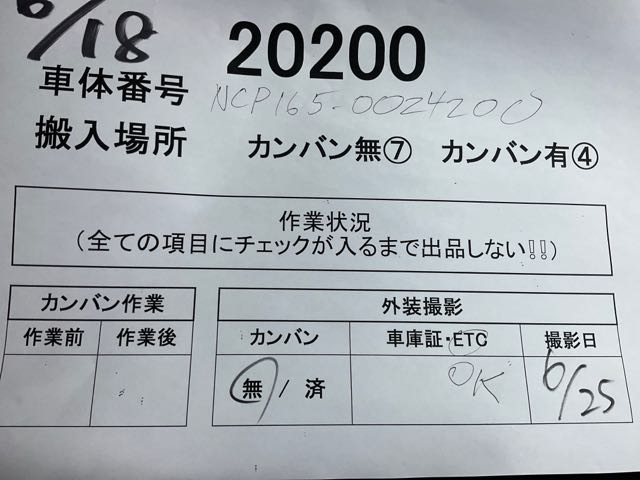 6/18 20200
車体番号 NCP165-0024200
搬入場所 カンバン無⑦ カンバン有④
作業状況
(全ての項目にチェックが入るまで出品しない!!)
カンバン作業 外装撮影
作業前 作業後 カンバン 車庫証・ETC 撮影日
無 / 済 OK 6/25